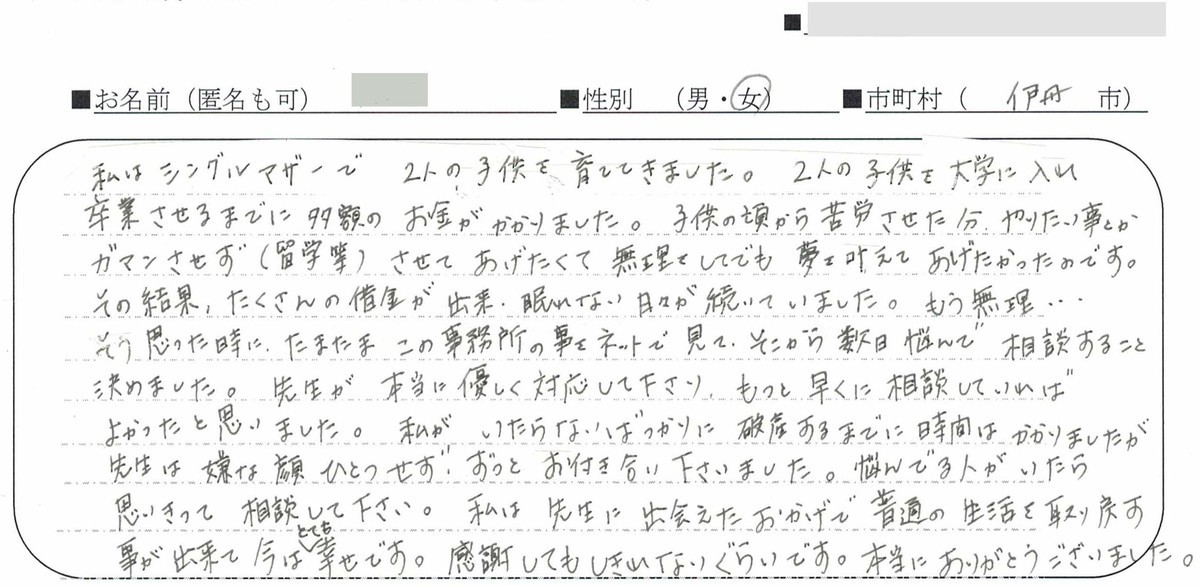 ■
■お名前（匿名も可） ■性別 （男・女） ■市町村（ 伊丹 市）
私はシングルマザーで 2人の子供を育ててきました。 2人の子供を大学に入れ
卒業させるまでに多額のお金がかかりました。子供の頃から苦労させた分、やりたい事とか
ガマンさせず（留学等）させてあげたくて無理をしてでも夢を叶えてあげたかったのです。
その結果、たくさんの借金が出来、眠れない日々が続いていました。もう無理・・・
そう思った時に、たまたまこの事務所の事をネットで見て、そこから数日悩んで相談すること
決めました。先生が本当に優しく対応して下さり、もっと早くに相談していれば
よかったと思いました。私がいたらないばっかりに破産するまでに時間はかかりましたが
先生は嫌な顔ひとつせず、ずっとお付き合い下さいました。悩んでる人がいたら
思いきって相談して下さい。私は先生に出会えたおかげで普通の生活を取り戻す
事が出来て今はとても幸せです。感謝してもしきれないぐらいです。本当にありがとうございました。